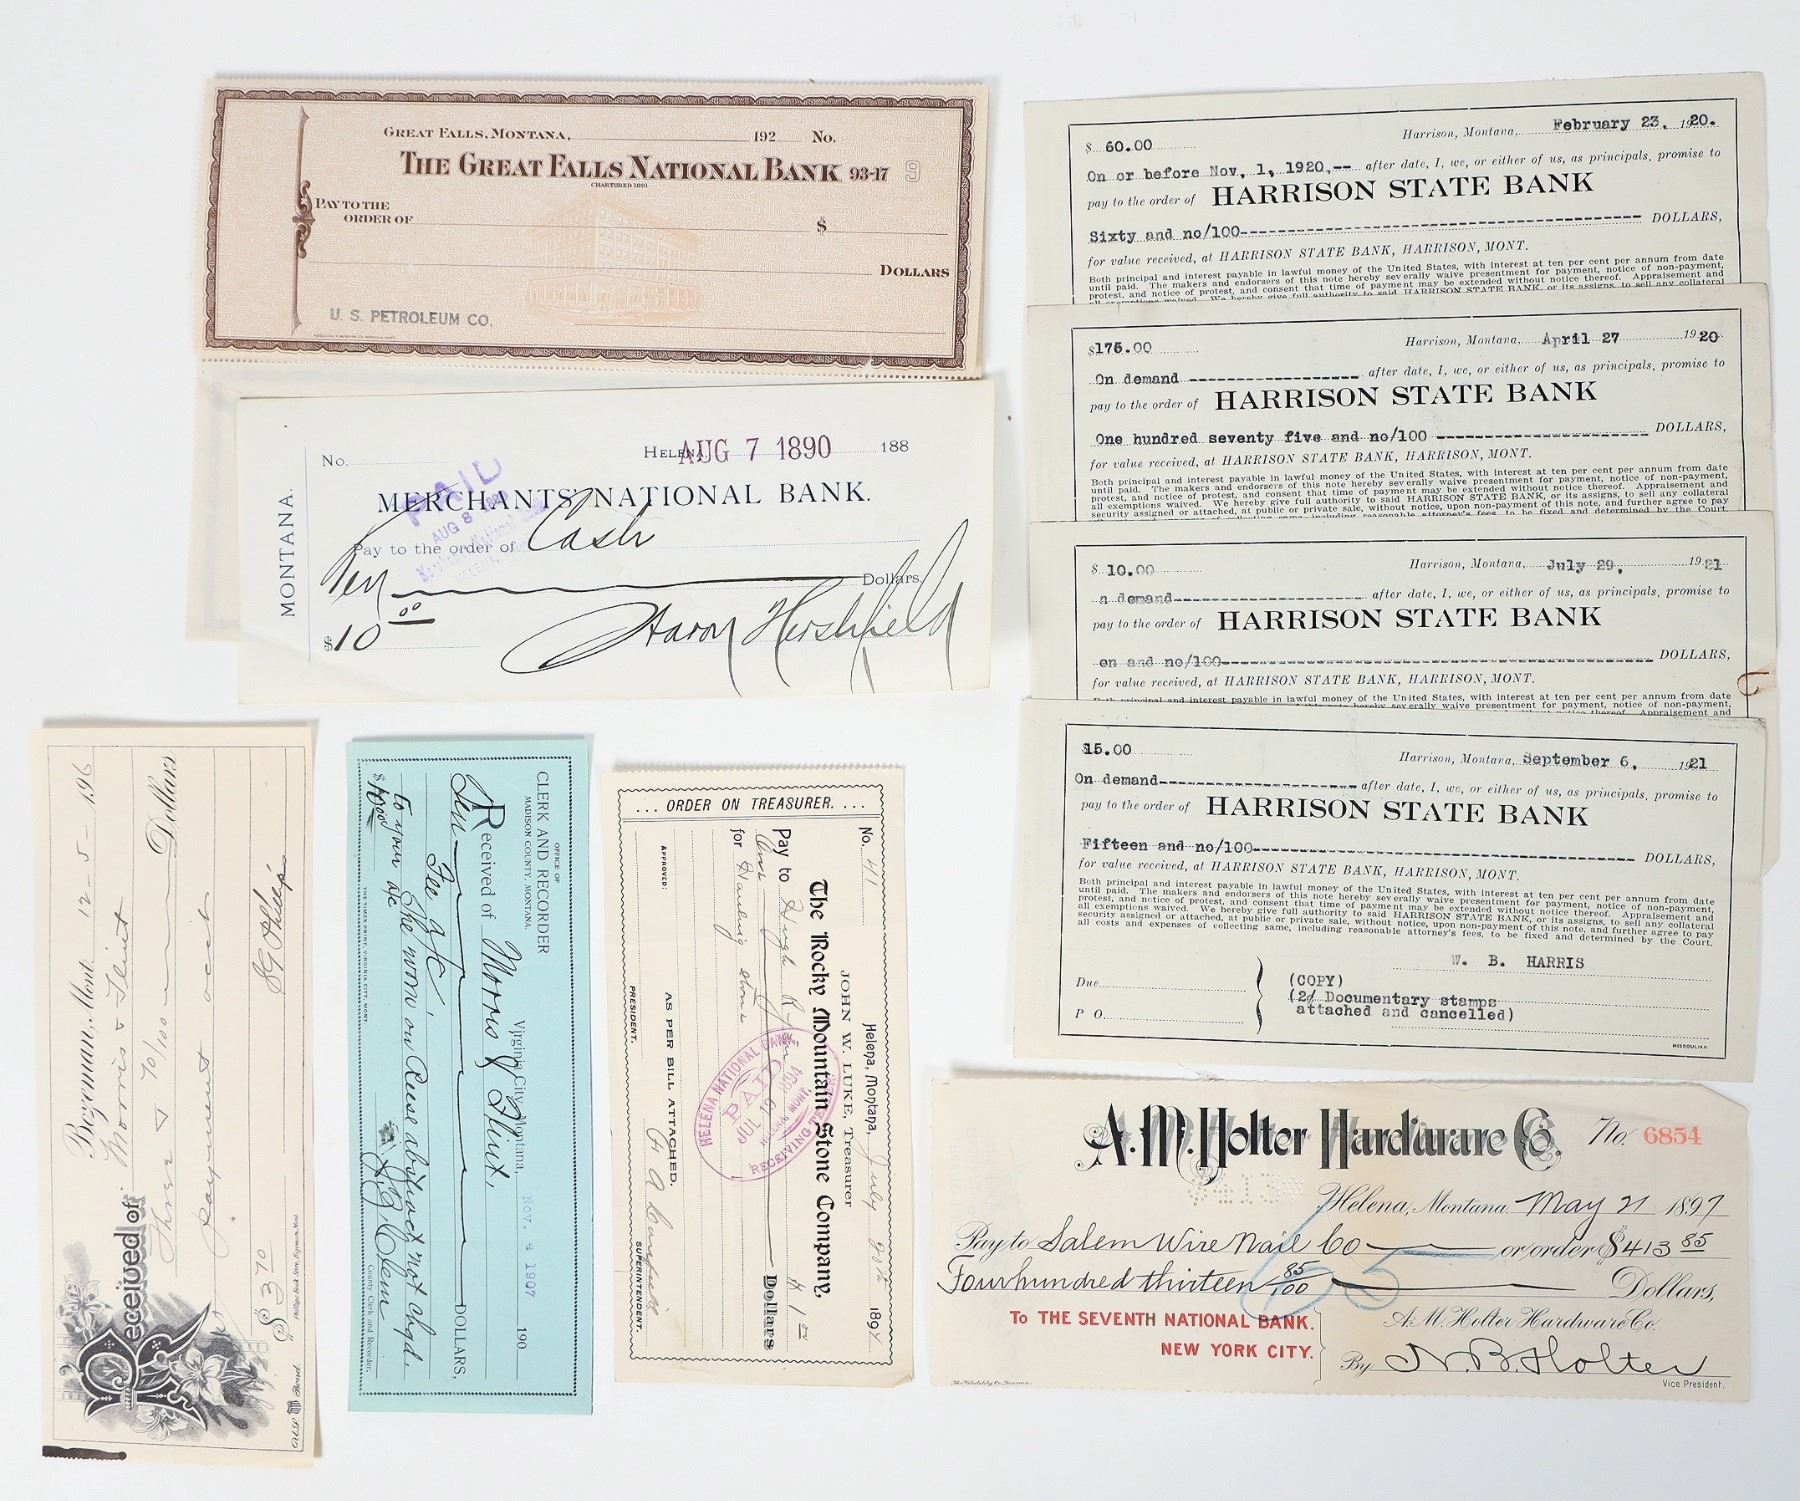 GREAT FALLS, MONTANA, 192 No.
THE GREAT FALLS NATIONAL BANK 93-17 9
CHARTERED 1891
PAY TO THE
ORDER OF $
DOLLARS
U. S. PETROLEUM CO.
No. HELENA, AUG 7 1890 188
MONTANA.
PAID
AUG 8
MERCHANTS NATIONAL BANK.
Pay to the order of Cash
Ten Dollars
$10 00 Aaron Hershfield
$ 60.00 Harrison, Montana, February 23, 1920.
On or before Nov, 1, 1920,-- after date, I, we, or either of us, as principals, promise to
pay to the order of HARRISON STATE BANK
Sixty and no/100 DOLLARS,
for value received, at HARRISON STATE BANK, HARRISON, MONT.
Both principal and interest payable in lawful money of the United States, with interest at ten per cent per annum from date
until paid. The makers and endorsers of this note hereby severally waive presentment for payment, notice of non-payment,
protest, and notice of protest, and consent that time of payment may be extended without notice thereof. Appraisement and
all exemptions waived. We hereby give full authority to said HARRISON STATE BANK, or its assigns, to sell any collateral
$175.00 Harrison, Montana, April 27 1920
On demand after date, I, we, or either of us, as principals, promise to
pay to the order of HARRISON STATE BANK
One hundred seventy five and no/100 DOLLARS,
for value received, at HARRISON STATE BANK, HARRISON, MONT.
Both principal and interest payable in lawful money of the United States, with interest at ten per cent per annum from date
until paid. The makers and endorsers of this note hereby severally waive presentment for payment, notice of non-payment,
protest, and notice of protest, and consent that time of payment may be extended without notice thereof. Appraisement and
all exemptions waived. We hereby give full authority to said HARRISON STATE BANK, or its assigns, to sell any collateral
security assigned or attached, at public or private sale, without notice, upon non-payment of this note, and further agree to pay
all costs and expenses of collecting same, including reasonable attorney's fees, to be fixed and determined by the Court.
$ 10.00 Harrison, Montana, July 29, 1921
n demand after date, I, we, or either of us, as principals, promise to
pay to the order of HARRISON STATE BANK
en and no/100 DOLLARS,
for value received, at HARRISON STATE BANK, HARRISON, MONT.
Both principal and interest payable in lawful money of the United States, with interest at ten per cent per annum from date
$15.00 Harrison, Montana, September 6, 1921
On demand after date, I, we, or either of us, as principals, promise to
pay to the order of HARRISON STATE BANK
Fifteen and no/100 DOLLARS,
for value received, at HARRISON STATE BANK, HARRISON, MONT.
Both principal and interest payable in lawful money of the United States, with interest at ten per cent per annum from date
until paid. The makers and endorsers of this note hereby severally waive presentment for payment, notice of non-payment,
protest, and notice of protest, and consent that time of payment may be extended without notice thereof. Appraisement and
all exemptions waived. We hereby give full authority to said HARRISON STATE BANK, or its assigns, to sell any collateral
security assigned or attached, at public or private sale, without notice, upon non-payment of this note, and further agree to pay
all costs and expenses of collecting same, including reasonable attorney's fees, to be fixed and determined by the Court.
W. B. HARRIS
Due
P O.
(COPY)
(2¢ Documentary stamps
attached and cancelled)
MISSOULIAN
Bozeman, Mont. 12-5-196
Received of Morris & Flint
Three & 70/100 Dollars
payment acct
$ 3 70
OFFICE OF
CLERK AND RECORDER
MADISON COUNTY, MONTANA.
Virginia City, Montana, Nov. 4 1907 190
Received of Morris & Flint,
Ten DOLLARS,
Fee a/c
County Clerk and Recorder.
THE TIMES PRINT, VIRGINIA CITY, MONT.
... ORDER ON TREASURER. ...
No. 41 Helena, Montana, July 1894
JOHN W. LUKE, Treasurer
The Rocky Mountain Stone Company,
Pay to Hugh Ryan $1 00
One Dollars
for Hauling stone
HELENA NATIONAL BANK
PAID
JUL 1894
HELENA MONT.
RECEIVING TELLER
AS PER BILL ATTACHED.
APPROVED:
PRESIDENT. SUPERINTENDENT.
A. M. Holter Hardware Co. No. 6854
Helena, Montana. May 21 1897
Pay to Salem Wire Nail Co or order $413 85
Four hundred thirteen 85/100 Dollars,
To THE SEVENTH NATIONAL BANK.
NEW YORK CITY.
A. M. Holter Hardware Co.
By N. B. Holter
Vice President.